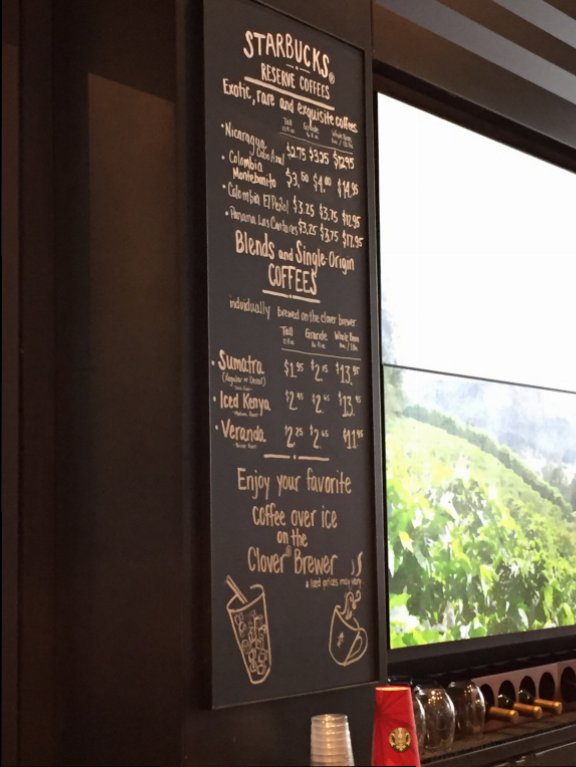 STARBUCKS®
RESERVE COFFEES
Exotic, rare and exquisite coffees
Tall Grande Whole Bean
• Nicaragua $2.75 $3.25 $12.95
• Colombia
Montebonito $3.50 $4.00 $14.95
• Colombia El Peñol $3.25 $3.75
• Panama Los Cantares $3.25 $3.75 $17.95
Blends and Single-Origin
COFFEES
individually brewed on the clover brewer
Tall Grande Whole Bean
• Sumatra $1.95 $13.95
• Iced Kenya $13.95
• Veranda $2.25 $2.65 $11.95
Enjoy your favorite
coffee over ice
on the
Clover® Brewer
* Iced prices may vary.